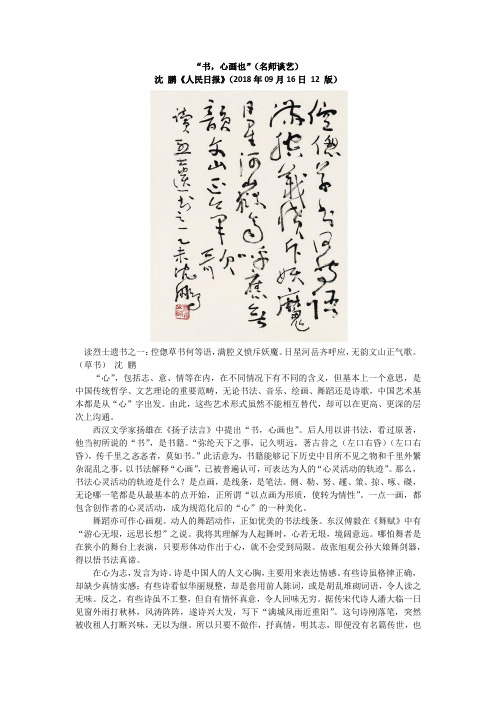 “书，心画也”（名师谈艺）
沈 鹏《人民日报》（2018 年 09 月 16 日 12 版）
倥偬草书何等语
满腔义愤斥妖魔
日星河岳齐呼应无
韵文山正气歌
读烈士遗书之一 乙未 沈鹏
读烈士遗书之一：倥偬草书何等语，满腔义愤斥妖魔。日星河岳齐呼应，无韵文山正气歌。
（草书） 沈 鹏
“心”，包括志、意、情等在内，在不同情况下有不同的含义，但基本上一个意思，是
中国传统哲学、文艺理论的重要范畴，无论书法、音乐、绘画、舞蹈还是诗歌，中国艺术基
本都是从“心”字出发。由此，这些艺术形式虽然不能相互替代，却可以在更高、更深的层
次上沟通。
西汉文学家扬雄在《扬子法言》中提出“书，心画也”。后人用以讲书法，看过原著，
他当初所说的“书”，是书籍。“弥纶天下之事，记久明远，著古昔之（左口右昏）（左口右
昏），传千里之忞忞者，莫如书。”此话意为，书籍能够记下历史中目所不见之物和千里外繁
杂混乱之事。以书法解释“心画”，已被普遍认可，可表达为人的“心灵活动的轨迹”。那么，
书法心灵活动的轨迹是什么？是点画，是线条，是笔法。侧、勒、努、趯、策、掠、啄、磔，
无论哪一笔都是从最基本的点开始，正所谓“以点画为形质，使转为情性”。一点一画，都
包含创作者的心灵活动，成为规范化后的“心”的一种美化。
舞蹈亦可作心画观。动人的舞蹈动作，正如优美的书法线条。东汉傅毅在《舞赋》中有
“游心无垠，远思长想”之说。我将其理解为人起舞时，心若无垠，境阔意远。哪怕舞者是
在狭小的舞台上表演，只要形体动作出于心，就不会受到局限。故张旭观公孙大娘舞剑器，
得以悟书法真谛。
在心为志，发言为诗。诗是中国人的人文心胸，主要用来表达情感。有些诗虽格律正确，
却缺少真情实感；有些诗看似华丽规整，却是套用前人陈词，或是胡乱堆砌词语，令人读之
无味。反之，有些诗虽不工整，但自有情怀真意，令人回味无穷。据传宋代诗人潘大临一日
见窗外雨打秋林，风涛阵阵，遂诗兴大发，写下“满城风雨近重阳”。这句诗刚落笔，突然
被收租人打断兴味，无以为继。所以只要不做作，抒真情，明其志，即便没有名篇传世，也